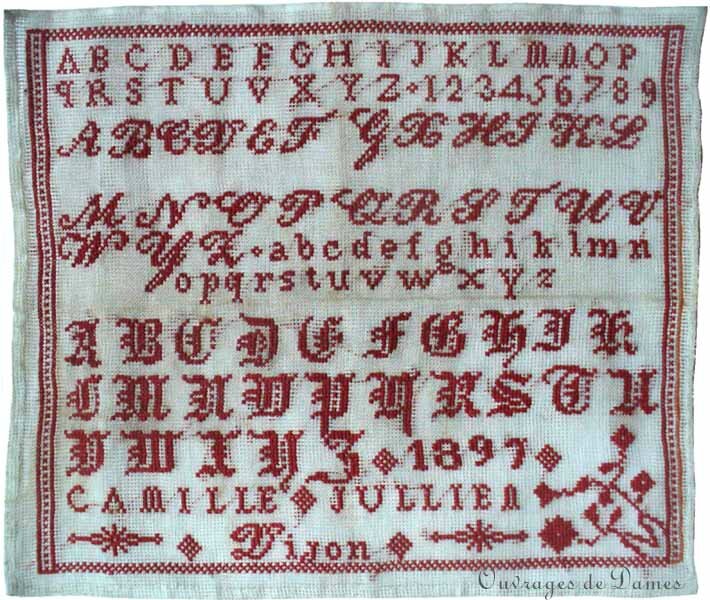 A B C D E F G H I J K L M N O P
q R S T U V X Y Z 1 2 3 4 5 6 7 8 9
A B C D E F G X H I K L
M N O P Q R S T U V
W Y Z a b c d e f g h i k l m n
o p q r s t u v w x y z
A B C D E F G H I K
L M N O P Q R S T U
V W X Y Z 1897
CAMILLE JULLIEN
Dijon
Ouvrages de Dames